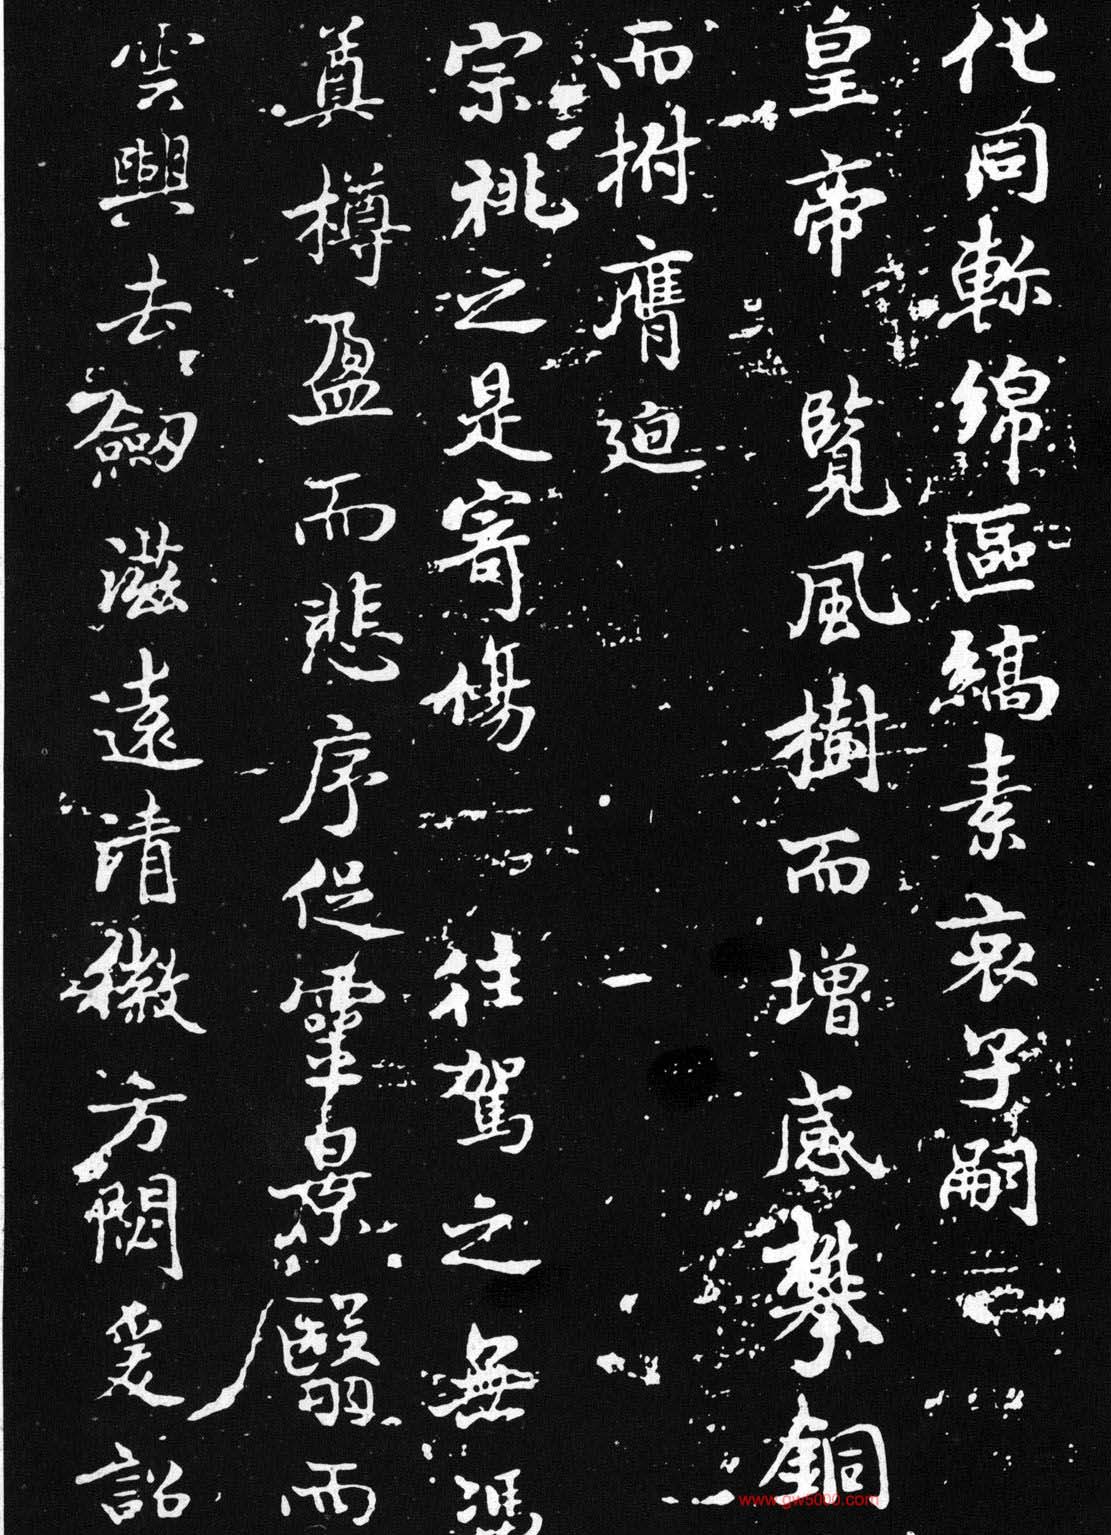 化同軫綿區縞素哀子嗣
皇帝覽風樹而增感攀銅
而拊膺迫
宗祧之是寄傷一往駕之無馮
奠樽盈而悲序促靈景翳而
雲輿去劒滋遠清徽方閟爰詔
www.gw5000.com